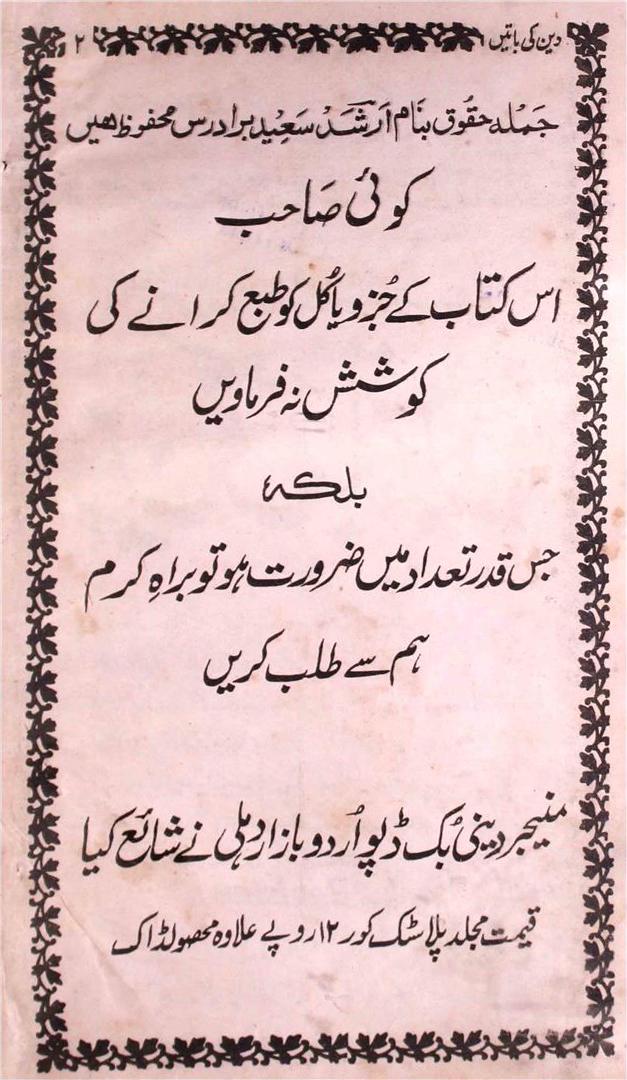 دین کی باتیں ۱
۲
جملہ حقوق بنام ارشد سعید برادرس محفوظ ھیں
کوئی صاحب
اس کتاب کے جُزو یا کُل کو طبع کرانے کی
کوشش نہ فرماویں
بلکہ
جس قدر تعداد میں ضرورت ہو تو براہِ کرم
ہم سے طلب کریں
منیجر دینی بُک ڈپو اُردو بازار دہلی نے شائع کیا
قیمت مجلد پلاسٹک کور ۱۲ روپے علاوہ محصولڈاک